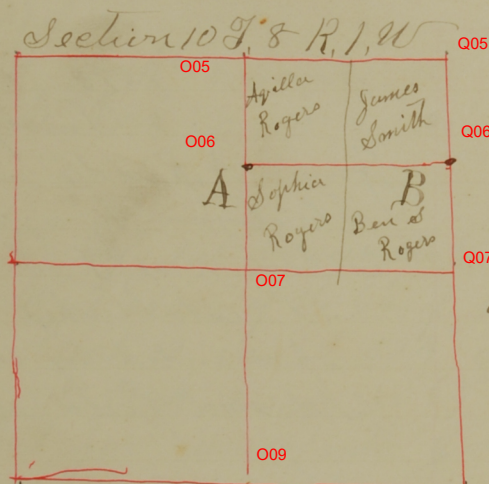 Section 10 T, 8 R, 1, W
Q05
O05
Aqilla
Rogers
James
Smith
O06
Q06
A
B
Sophia
Rogers
Ben S
Rogers
Q07
O07
O09